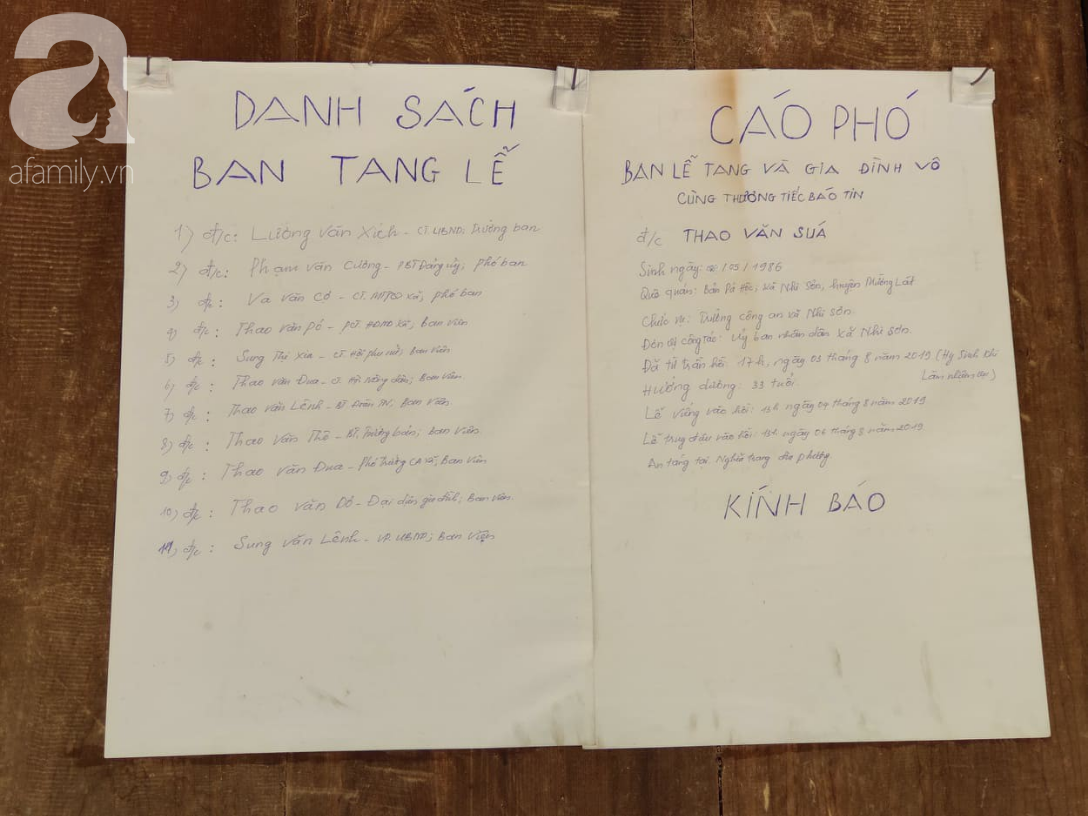 a
afamily.vn
DANH SÁCH
BAN TANG LỄ
1) đ/c: Lương Văn Xích - CT.UBND, Trưởng ban
2) đ/c: Phạm Văn Cường - PBT Đảng ủy, phó ban
3) đ/c: Và Văn Cơ - CT. MTTQ xã, phó ban
4) đ/c: Thao Văn Pó - PCT HĐND xã, Ban viên
5) đ/c: Sung Thị Xia - CT. Hội phụ nữ, Ban viên
6) đ/c: Thao Văn Dua - CT. Hội nông dân, Ban viên
7) đ/c: Thao Văn Lênh - BT. Đoàn TN, Ban Viên
8) đ/c: Thao Văn Thê - BT, Trưởng bản, Ban viên
9) đ/c: Thao Văn Dua - Phó Trưởng CA xã, Ban viên
10) đ/c: Thao Văn Dó - Đại diện gia đình, Ban viên
11) đ/c: Sung Văn Lênh - VP UBND, Ban Viên
CÁO PHÓ
BAN LỄ TANG VÀ GIA ĐÌNH VÔ
CÙNG THƯƠNG TIẾC BÁO TIN
đ/c THAO VĂN SUÁ
Sinh ngày: /05/1986
Quê quán: Bản xã Nhi Sơn, huyện Mường Lát
Chức vụ: Trưởng công an xã Nhi Sơn
Đơn vị công tác: Ủy ban nhân dân xã Nhi Sơn
Đã từ trần hồi: 17h, ngày 03 tháng 8 năm 2019 (Hy sinh khi
Làm nhiệm vụ)
Hưởng dương: 33 tuổi
Lễ viếng vào hồi: ngày 04 tháng 8 năm 2019
Lễ truy điệu vào hồi: ngày 06 tháng 8 năm 2019
An táng tại: Nghĩa trang địa phương
KÍNH BÁO